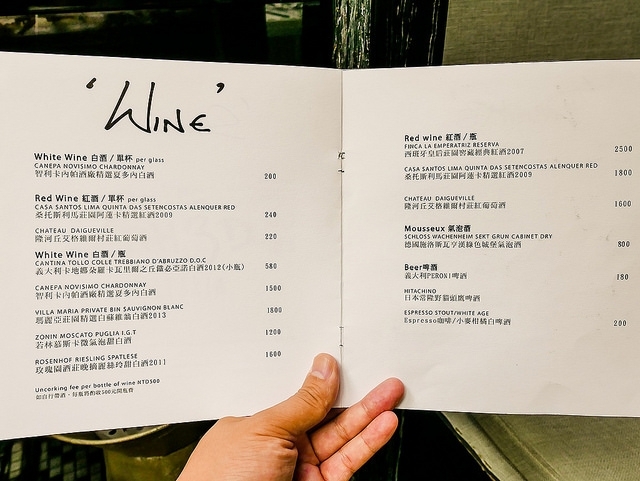 'WINE'
White Wine 白酒 / 單杯 per glass
CANEPA NOVISIMO CHARDONNAY
智利卡內帕酒廠精選夏多內白酒 200
Red Wine 紅酒 / 單杯 per glass
CASA SANTOS LIMA QUINTA DAS SETENCOSTAS ALENQUER RED
桑托斯利馬莊園阿蓮卡精選紅酒2009 240
CHATEAU DAIGUEVILLE
隆河丘艾格維爾村莊紅葡萄酒 220
White Wine 白酒 / 瓶
CANTINA TOLLO COLLE TREBBIANO D'ABRUZZO D.O.C
義大利卡地娜朵羅卡瓦里爾之丘鐵必亞諾白酒2012(小瓶) 580
CANEPA NOVISIMO CHARDONNAY
智利卡內帕酒廠精選夏多內白酒 1500
VILLA MARIA PRIVATE BIN SAUVIGNON BLANC
瑪麗亞莊園精選白蘇維翁白酒2013 1800
ZONIN MOSCATO PUGLIA I.G.T
若林慕斯卡微氣泡甜白酒 1200
ROSENHOF RIESLING SPATLESE
玫瑰園酒莊晚摘麗絲玲甜白酒2011 1600
Uncorking fee per bottle of wine NTD500
如自行帶酒，每瓶將酌收500元開瓶費
Red wine 紅酒 / 瓶
FINCA LA EMPERATRIZ RESERVA
西班牙皇后莊園窖藏經典紅酒2007 2500
CASA SANTOS LIMA QUINTA DAS SETENCOSTAS ALENQUER RED
桑托斯利馬莊園阿蓮卡精選紅酒2009 1800
CHATEAU DAIGUEVILLE
隆河丘艾格維爾村莊紅葡萄酒 1600
Mousseux 氣泡酒
SCHLOSS WACHENHEIM SEKT GRUN CABINET DRY
德國施洛斯瓦亨漢綠色城堡氣泡酒 800
Beer啤酒
義大利PERONI啤酒 180
HITACHINO
日本常陸野貓頭鷹啤酒
ESPRESSO STOUT/WHITE AGE
Espresso咖啡/小麥柑橘白啤酒 200